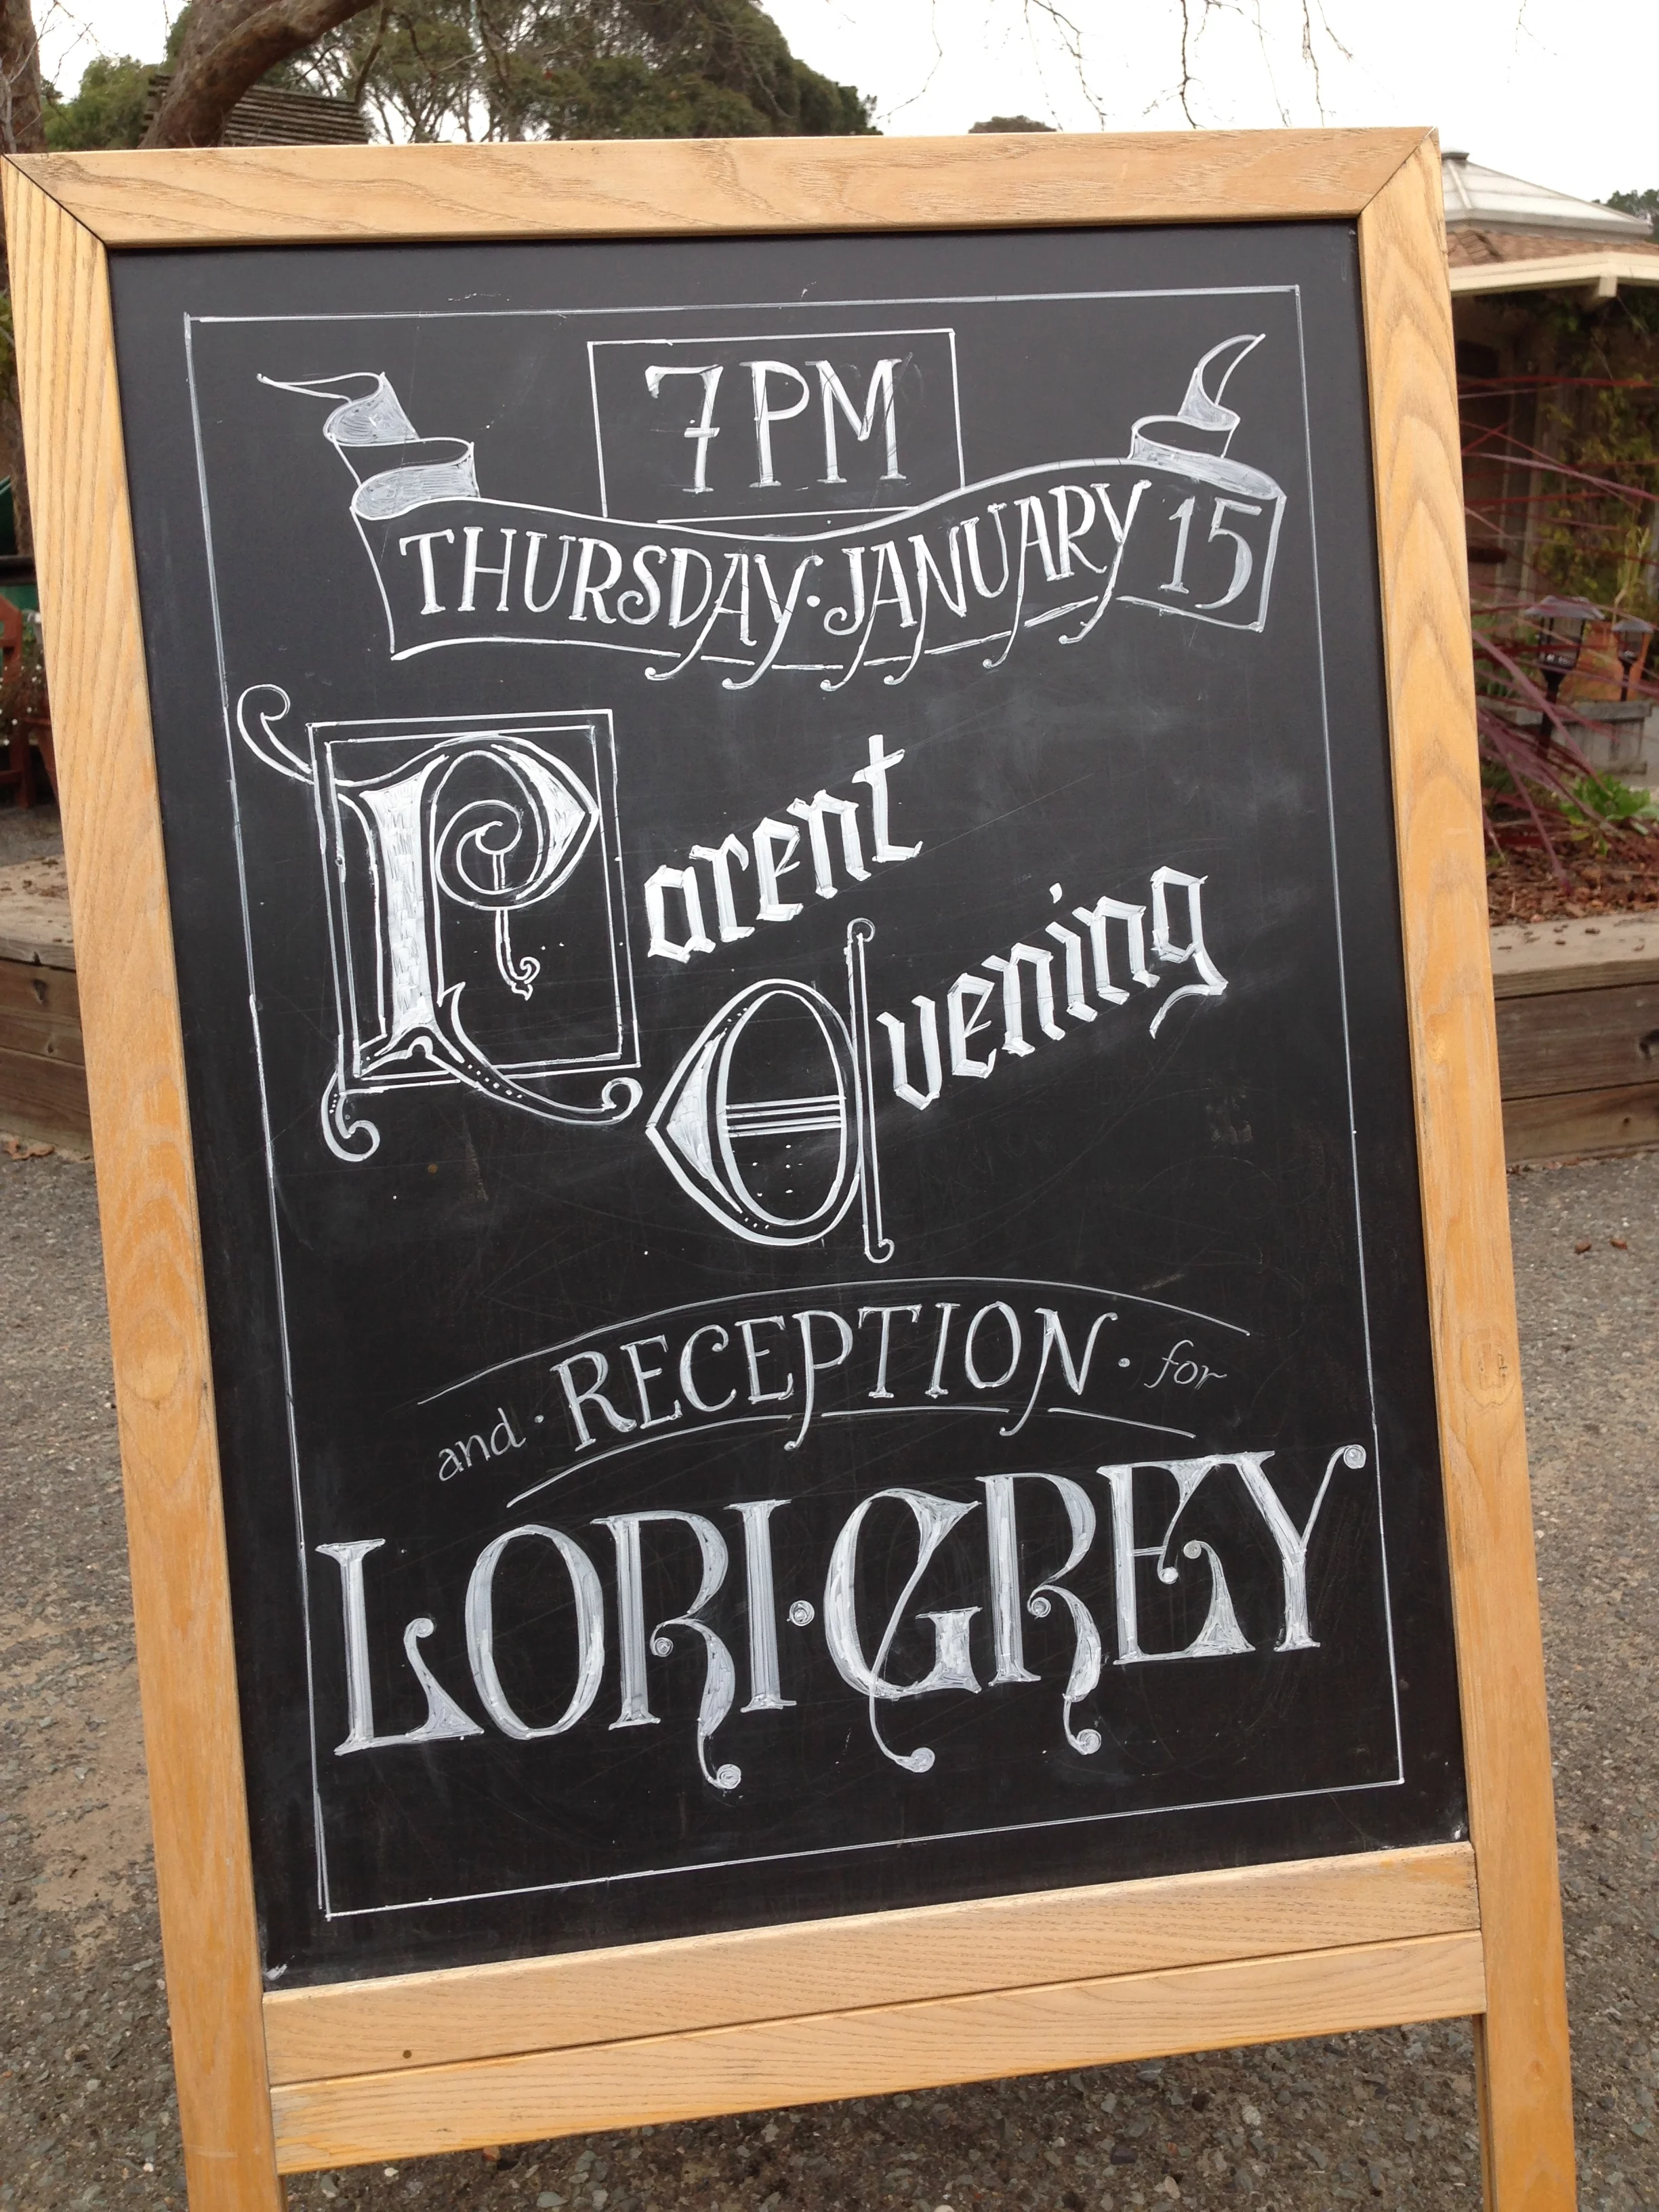 7PM
THURSDAY · JANUARY 15
Parent
Evening
and · RECEPTION · for
LORI · GREY